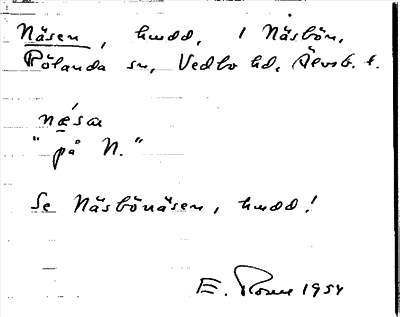 Näsen, hmdd, i Näsbön,
Rölanda sn, Vedbo hd, Älvsb. l.
næ´sa
"på N."
Se Näsbönäsen, hmdd!
E. 1954